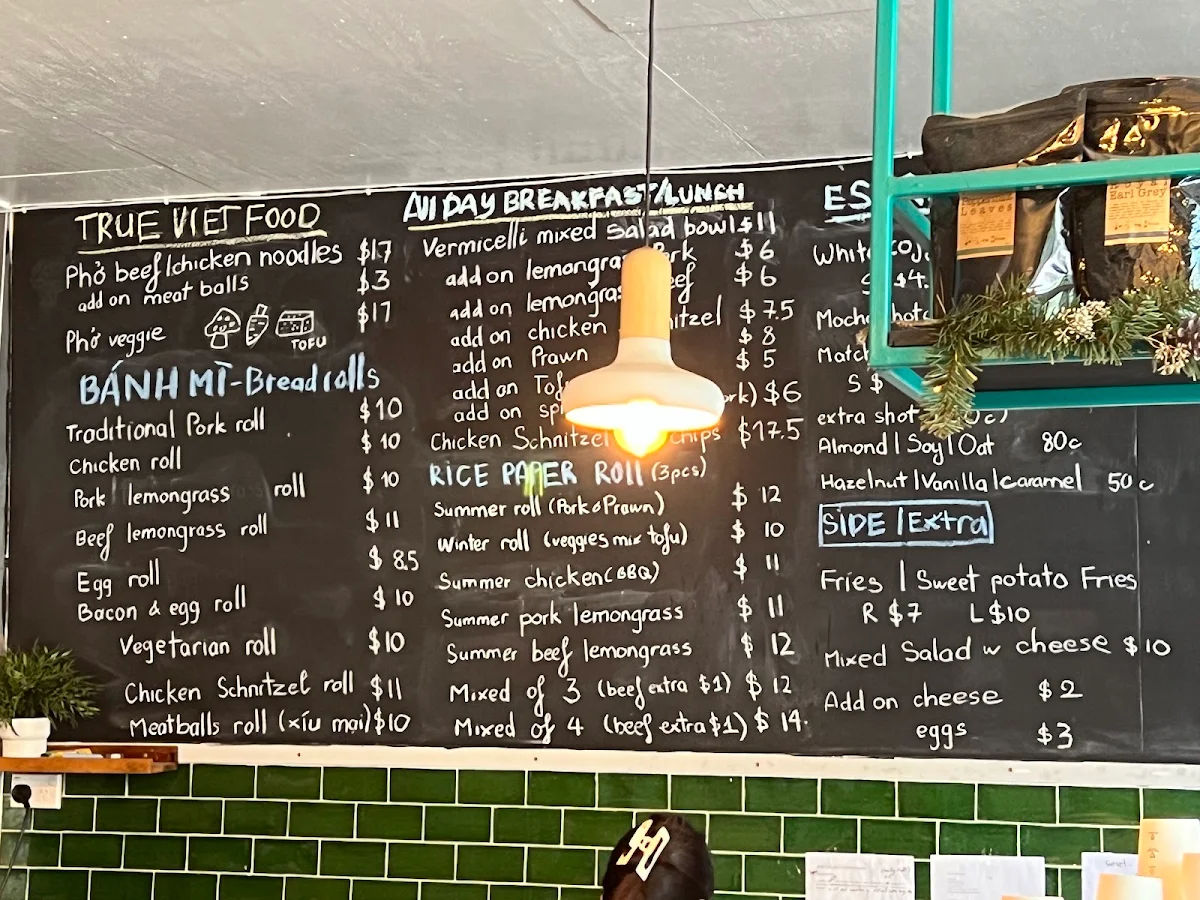 TRUE VIET FOOD
Phở beef/chicken noodles $17
add on meat balls $3
Phở veggie $17
TOFU
BÁNH MÌ-Bread rolls
Traditional Pork roll $10
Chicken roll $10
Pork lemongrass roll $10
Beef lemongrass roll $11
Egg roll $8.5
Bacon & egg roll $10
Vegetarian roll $10
Chicken Schnitzel roll $11
Meatballs roll (xíu mại) $10
All DAY BREAKFAST/LUNCH
Vermicelli mixed salad bowl $11
add on $6
add on $6
add on chicken $7.5
add on Prawn $8
add on $5
add on $6
Chicken Schnitzel chips $17.5
RICE PAPER ROLL (3pcs)
Summer roll (Pork & Prawn) $12
Winter roll (veggies mix tofu) $10
Summer chicken (BBQ) $11
Summer pork lemongrass $11
Summer beef lemongrass $12
Mixed of 3 (beef extra $1) $12
Mixed of 4 (beef extra $1) $14.
extra shot
Almond | Soy | Oat 80c
Hazelnut | Vanilla | Caramel 50c
SIDE / Extra
Fries | Sweet potato Fries
R $7 L $10
Mixed Salad w cheese $10
Add on cheese $2
eggs $3
Leaves
Earl Grey